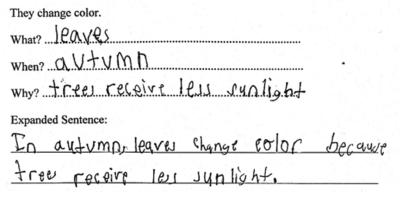 They change color.
What? leaves
When? autumn
Why? trees receive less sunlight
Expanded Sentence:
In autumn, leaves change color because
trees receive less sunlight.